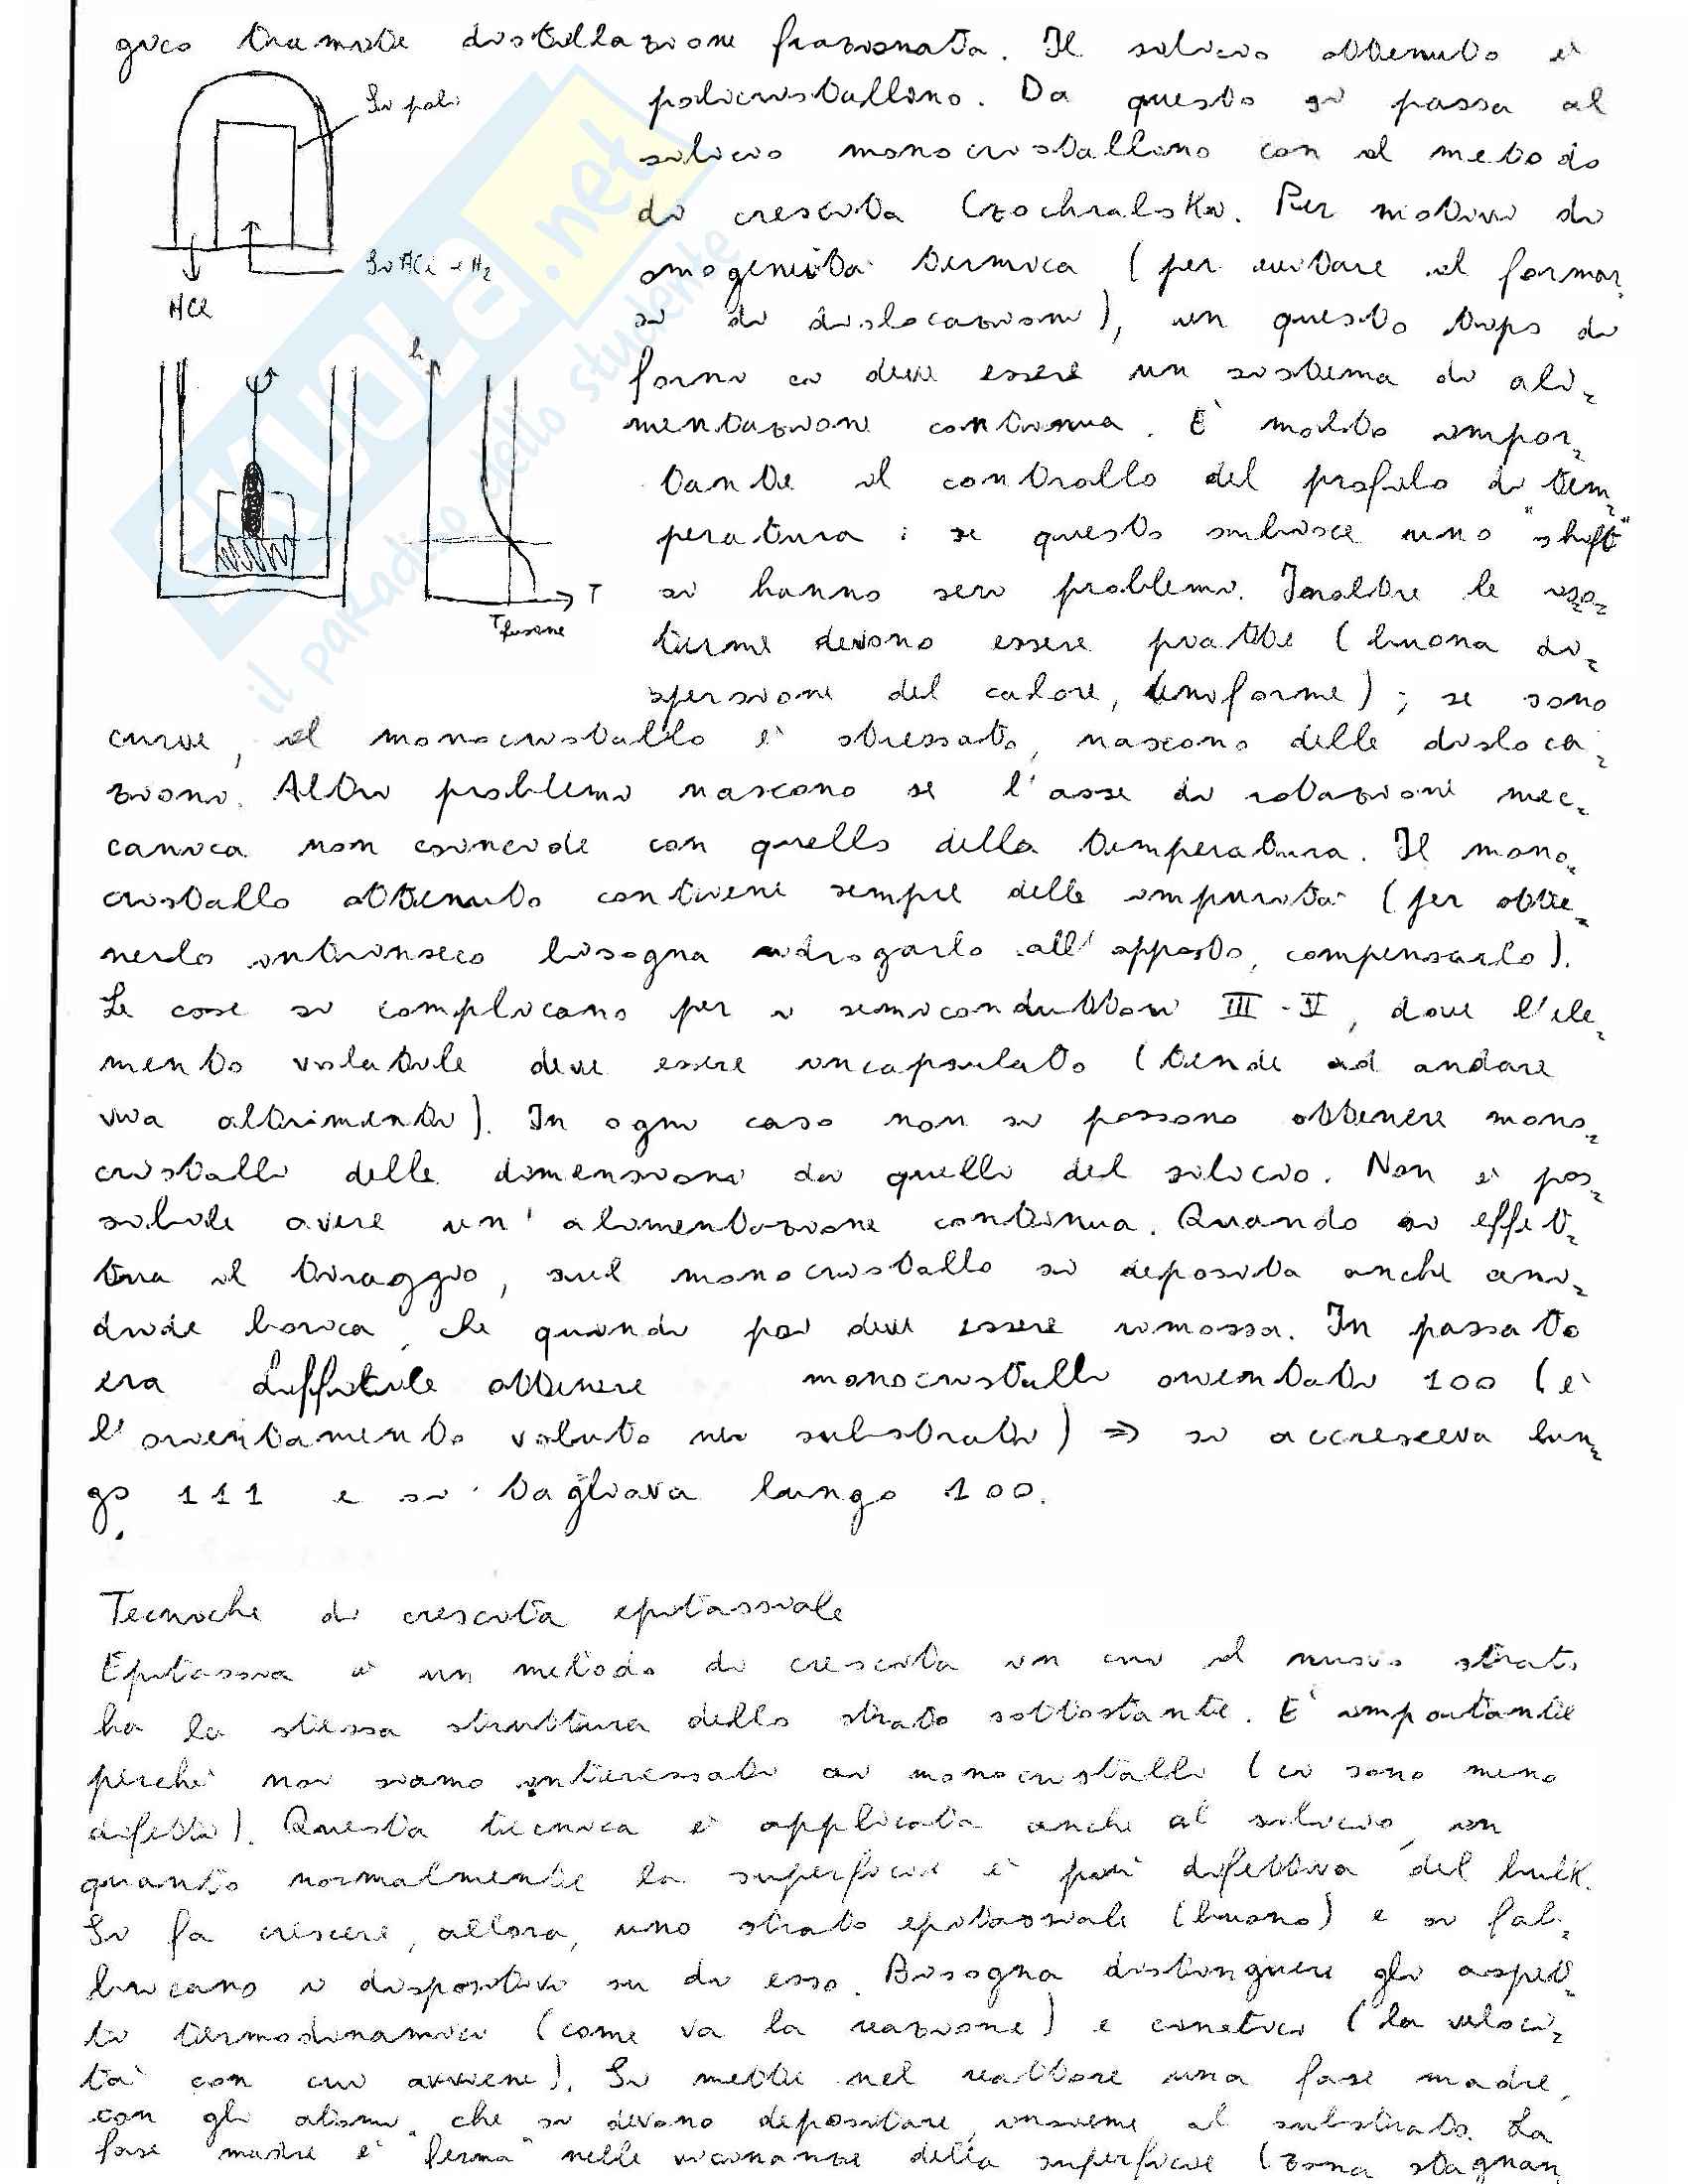 gico tramite distillazione frazionata. Il silicio ottenuto è
Si poli
policristallino. Da questo si passa al
silicio monocristallino con il metodo
di crescita Czochralski. Per motivi di
SiHCl e H2
omogeneità termica (per evitare il formar
HCl
si di dislocazioni), in questo tipo di
h
forni ci deve essere un sistema di ali-
mentazione continua. È molto impor-
tante il controllo del profilo di tem-
peratura : se questo subisce uno "shift"
T
si hanno seri problemi. Inoltre le iso-
Tfusione
terme devono essere piatte (buona di-
spersione del calore, uniforme) ; se sono
curve, il monocristallo è stressato, nascono delle disloca-
zioni. Altri problemi nascono se l'asse di rotazione mec-
canica non coincide con quello della temperatura. Il mono-
cristallo ottenuto contiene sempre delle impurità (per otte-
nerlo intrinseco bisogna drogarlo all'opposto, compensarlo).
Le cose si complicano per i semiconduttori III-V, dove l'ele-
mento volatile deve essere incapsulato (tende ad andare
via altrimenti). In ogni caso non si possono ottenere mono-
cristalli delle dimensioni di quelli del silicio. Non è pos-
sibile avere un'alimentazione continua. Quando si effet-
tua il tiraggio, sul monocristallo si deposita anche ani-
dride borica, che quindi poi deve essere rimossa. In passato
era difficile ottenere monocristalli orientati 100 (è
l'orientamento voluto nei substrati) ⇒ si accresceva lun-
go 111 e si tagliava lungo 100.
Tecniche di crescita epitassiale
Epitassia è un metodo di crescita in cui il nuovo strato
ha la stessa struttura dello strato sottostante. È importante
perchè noi siamo interessati ai monocristalli (ci sono meno
difetti). Questa tecnica è applicata anche al silicio, in
quanto normalmente la superficie è più difettiva del bulk.
Si fa crescere, allora, uno strato epitassiale (buono) e si fab-
bricano i dispositivi su di esso. Bisogna distinguere gli aspet-
ti termodinamici (come va la reazione) e cinetici (la veloci-
tà con cui avviene). Si mette nel reattore una fase madre,
con gli atomi che si devono depositare, insieme al substrato. La
fase madre è "ferma" nelle vicinanze della superficie (zona stagnan